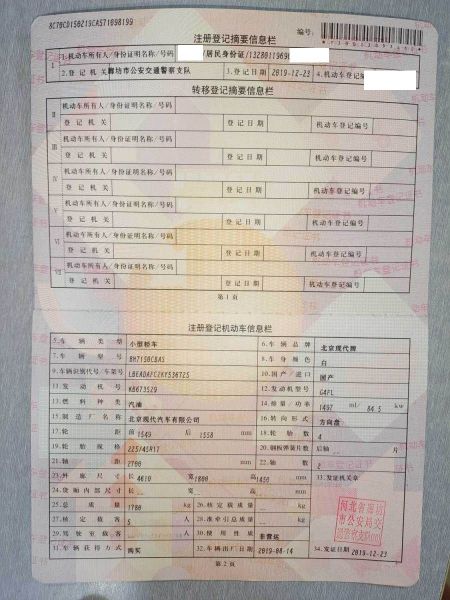 注册登记摘要信息栏
编号:
Ⅰ 1.机动车所有人/身份证明名称/号码 /居民身份证/1328011969
2.登记机关 廊坊市公安交通警察支队 3.登记日期 2019-12-23 4.机动车登记编号
转移登记摘要信息栏
Ⅱ 机动车所有人/身份证明名称/号码
登记机关 登记日期 机动车登记编号
Ⅲ 机动车所有人/身份证明名称/号码
登记机关 登记日期 机动车登记编号
Ⅳ 机动车所有人/身份证明名称/号码
登记机关 登记日期 机动车登记编号
Ⅴ 机动车所有人/身份证明名称/号码
登记机关 登记日期 机动车登记编号
Ⅵ 机动车所有人/身份证明名称/号码
登记机关 登记日期 机动车登记编号
Ⅶ 机动车所有人/身份证明名称/号码
登记机关 登记日期 机动车登记编号
第1页
注册登记机动车信息栏
5.车辆类型 小型轿车 6.车辆品牌 北京现代牌
7.车辆型号 BH7150CBAS 8.车身颜色 白
9.车辆识别代号/车架号 LBEADAFCZKY536725 10.国产/进口 国产
11.发动机号 KB673529 12.发动机型号 G4FL
13.燃料种类 汽油 14.排量/功率 1497 ml/ 84.5 kw
15.制造厂名称 北京现代汽车有限公司 16.转向形式 方向盘
17.轮距 前 1549 后 1558 mm 18.轮胎数 4
19.轮胎规格 225/45R17 20.钢板弹簧片数 后轴 片
21.轴距 2700 mm 22.轴数 2
23.外廓尺寸 长 4610 宽 1800 高 1450 mm 33.发证机关章
24.货厢内部尺寸 长 宽 高 mm
25.总质量 1700 kg 26.核定载质量 kg
27.核定载客 5 人 28.准牵引总质量 kg
29.驾驶室载客 人 非营运
31.车辆获得方式 购买 32.车辆出厂日期 2019-08-14 34.发证日期 2019-12-23
第2页